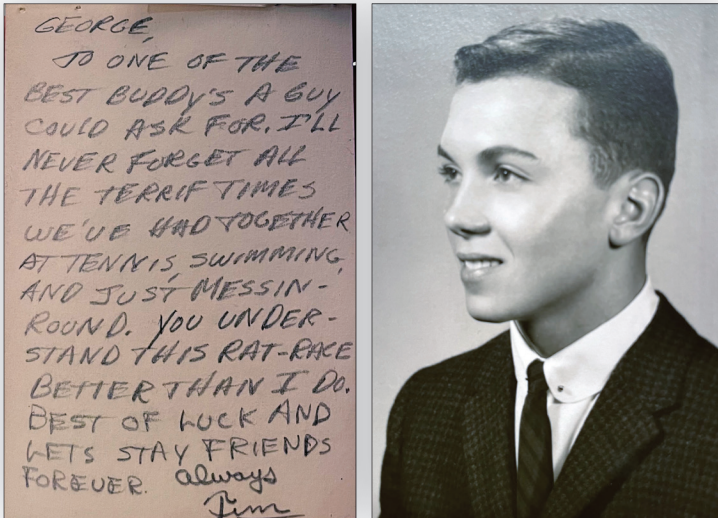 GEORGE,
TO ONE OF THE
BEST BUDDY'S A GUY
COULD ASK FOR. I'LL
NEVER FORGET ALL
THE TERRIF TIMES
WE'VE HAD TOGETHER
AT TENNIS, SWIMMING,
AND JUST MESSIN-
ROUND. YOU UNDER-
STAND THIS RAT-RACE
BETTER THAN I DO.
BEST OF LUCK AND
LETS STAY FRIENDS
FOREVER. always
Jim